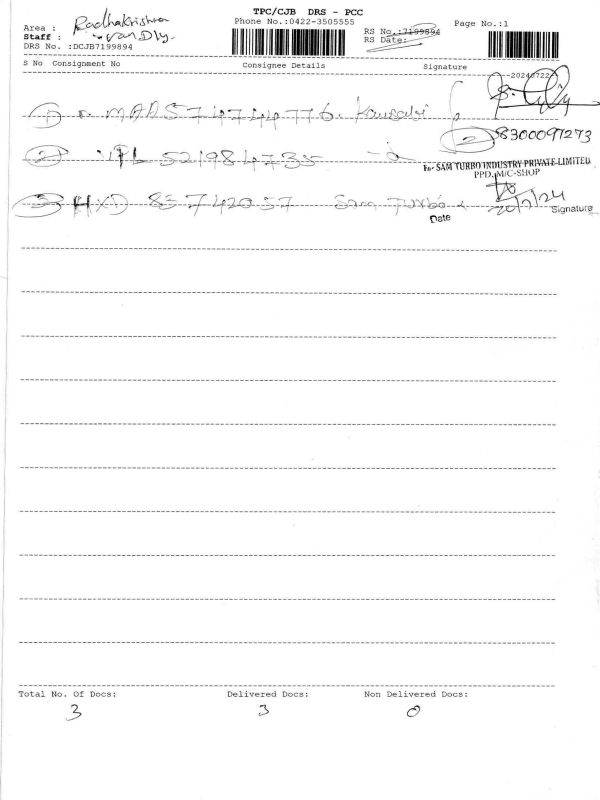 TPC/CJB DRS - PCC
Phone No.:0422-3505555
Page No.:1
Area : Radhakrishna
Staff : van Dly.
DRS No. :DCJB7199894
RS No.:7199894
RS Date:
S No Consignment No Consignee Details Signature
20240722
1 MAAS 74744776. Kausalvi
2 8300097273
2 521984735
For SAM TURBO INDUSTRY PRIVATE LIMITED
PPD. M/C-SHOP
3 HXD 83742057 Sam Turbo
20/7/24
Date Signature
Total No. Of Docs: Delivered Docs: Non Delivered Docs:
3 3 0